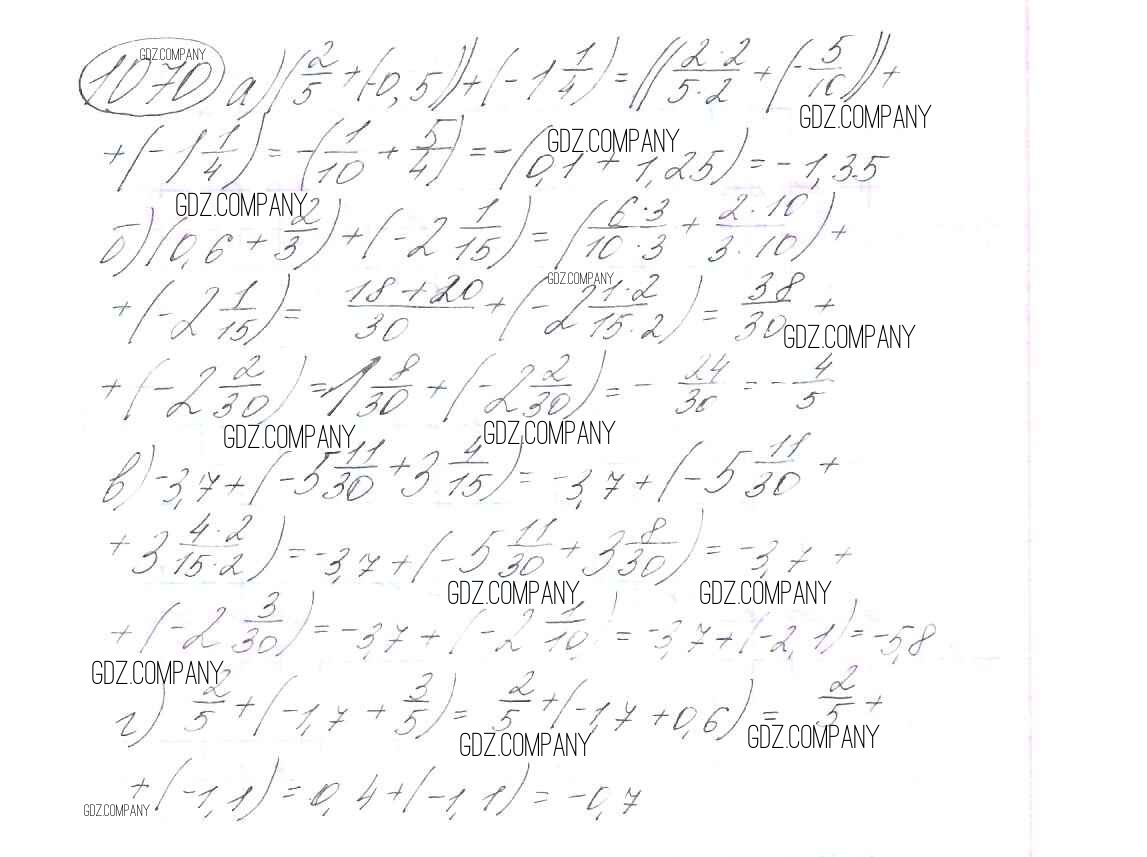 GDZ.COMPANY
1070 а) (2/5 + (-0,5)) + (-1 1/4) = ((2·2)/(5·2) + (-5/10)) +
GDZ.COMPANY GDZ.COMPANY
+ (-1 1/4) = -(1/10 + 5/4) = -(0,1 + 1,25) = -1,35
GDZ.COMPANY
б) (0,6 + 2/3) + (-2 1/15) = ((6·3)/(10·3) + (2·10)/(3·10)) +
GDZ.COMPANY
+ (-2 1/15) = (18+20)/30 + (-2 (1·2)/(15·2)) = 38/30 +
GDZ.COMPANY
+ (-2 2/30) = 1 8/30 + (-2 2/30) = - 24/30 = - 4/5
GDZ.COMPANY GDZ.COMPANY
в) -3,7 + (-5 11/30 + 3 4/15) = -3,7 + (-5 11/30 +
+ 3 (4·2)/(15·2)) = -3,7 + (-5 11/30 + 3 8/30) = -3,7 +
GDZ.COMPANY GDZ.COMPANY
+ (-2 3/30) = -3,7 + (-2 1/10) = -3,7 + (-2,1) = -5,8
GDZ.COMPANY
г) 2/5 + (-1,7 + 3/5) = 2/5 + (-1,7 + 0,6) = 2/5 +
GDZ.COMPANY GDZ.COMPANY
+ (-1,1) = 0,4 + (-1,1) = -0,7
GDZ.COMPANY